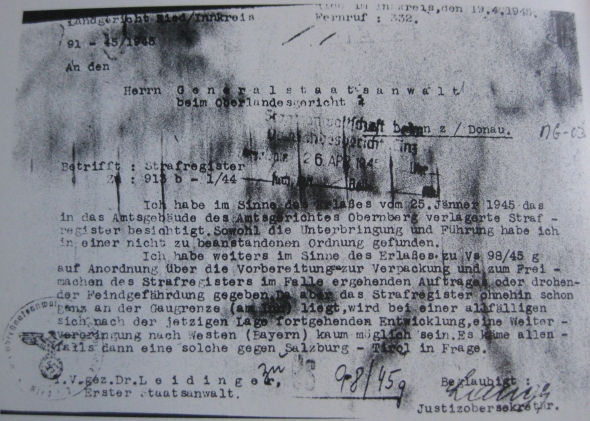 Landgericht Ried/Innkreis
Ried im Innkreis, den 19.4.1945.
Fernruf : 332.
91 - 45/1945
An den
Herrn Generalstaatsanwalt
beim Oberlandesgericht
Linz / Donau.
26. APR. 1945
Betrifft : Strafregister
Zu : 913 b - 1/44
Ich habe im Sinne des Erlaßes vom 25.Jänner 1945 das
in das Amtsgebäude des Amtsgerichtes Obernberg verlagerte Straf -
register besichtigt. Sowohl die Unterbringung und Führung habe ich
in einer nicht zu beanstandenen Ordnung gefunden.
Ich habe weiters im Sinne des Erlaßes zu Vs 98/45 g
auf Anordnung über die Vorbereitung zur Verpackung und zum Frei -
machen des Strafregisters im Falle ergehenden Auftrages oder drohen-
der Feindgefährdung gegeben. Da aber das Strafregister ohnehin schon
ganz an der Gaugrenze (am Inn) liegt, wird bei einer allfälligen
sich nach der jetzigen Lage fortgehenden Entwicklung, eine Weiter -
verbringung nach Westen (Bayern) kaum möglich sein. Es käme allen-
falls dann eine solche gegen Salzburg - Tirol in Frage.
zu
98/45g
I.V.gez.Dr.Leidinger,
Erster Staatsanwalt.
Beglaubigt :
Justizobersekretär.